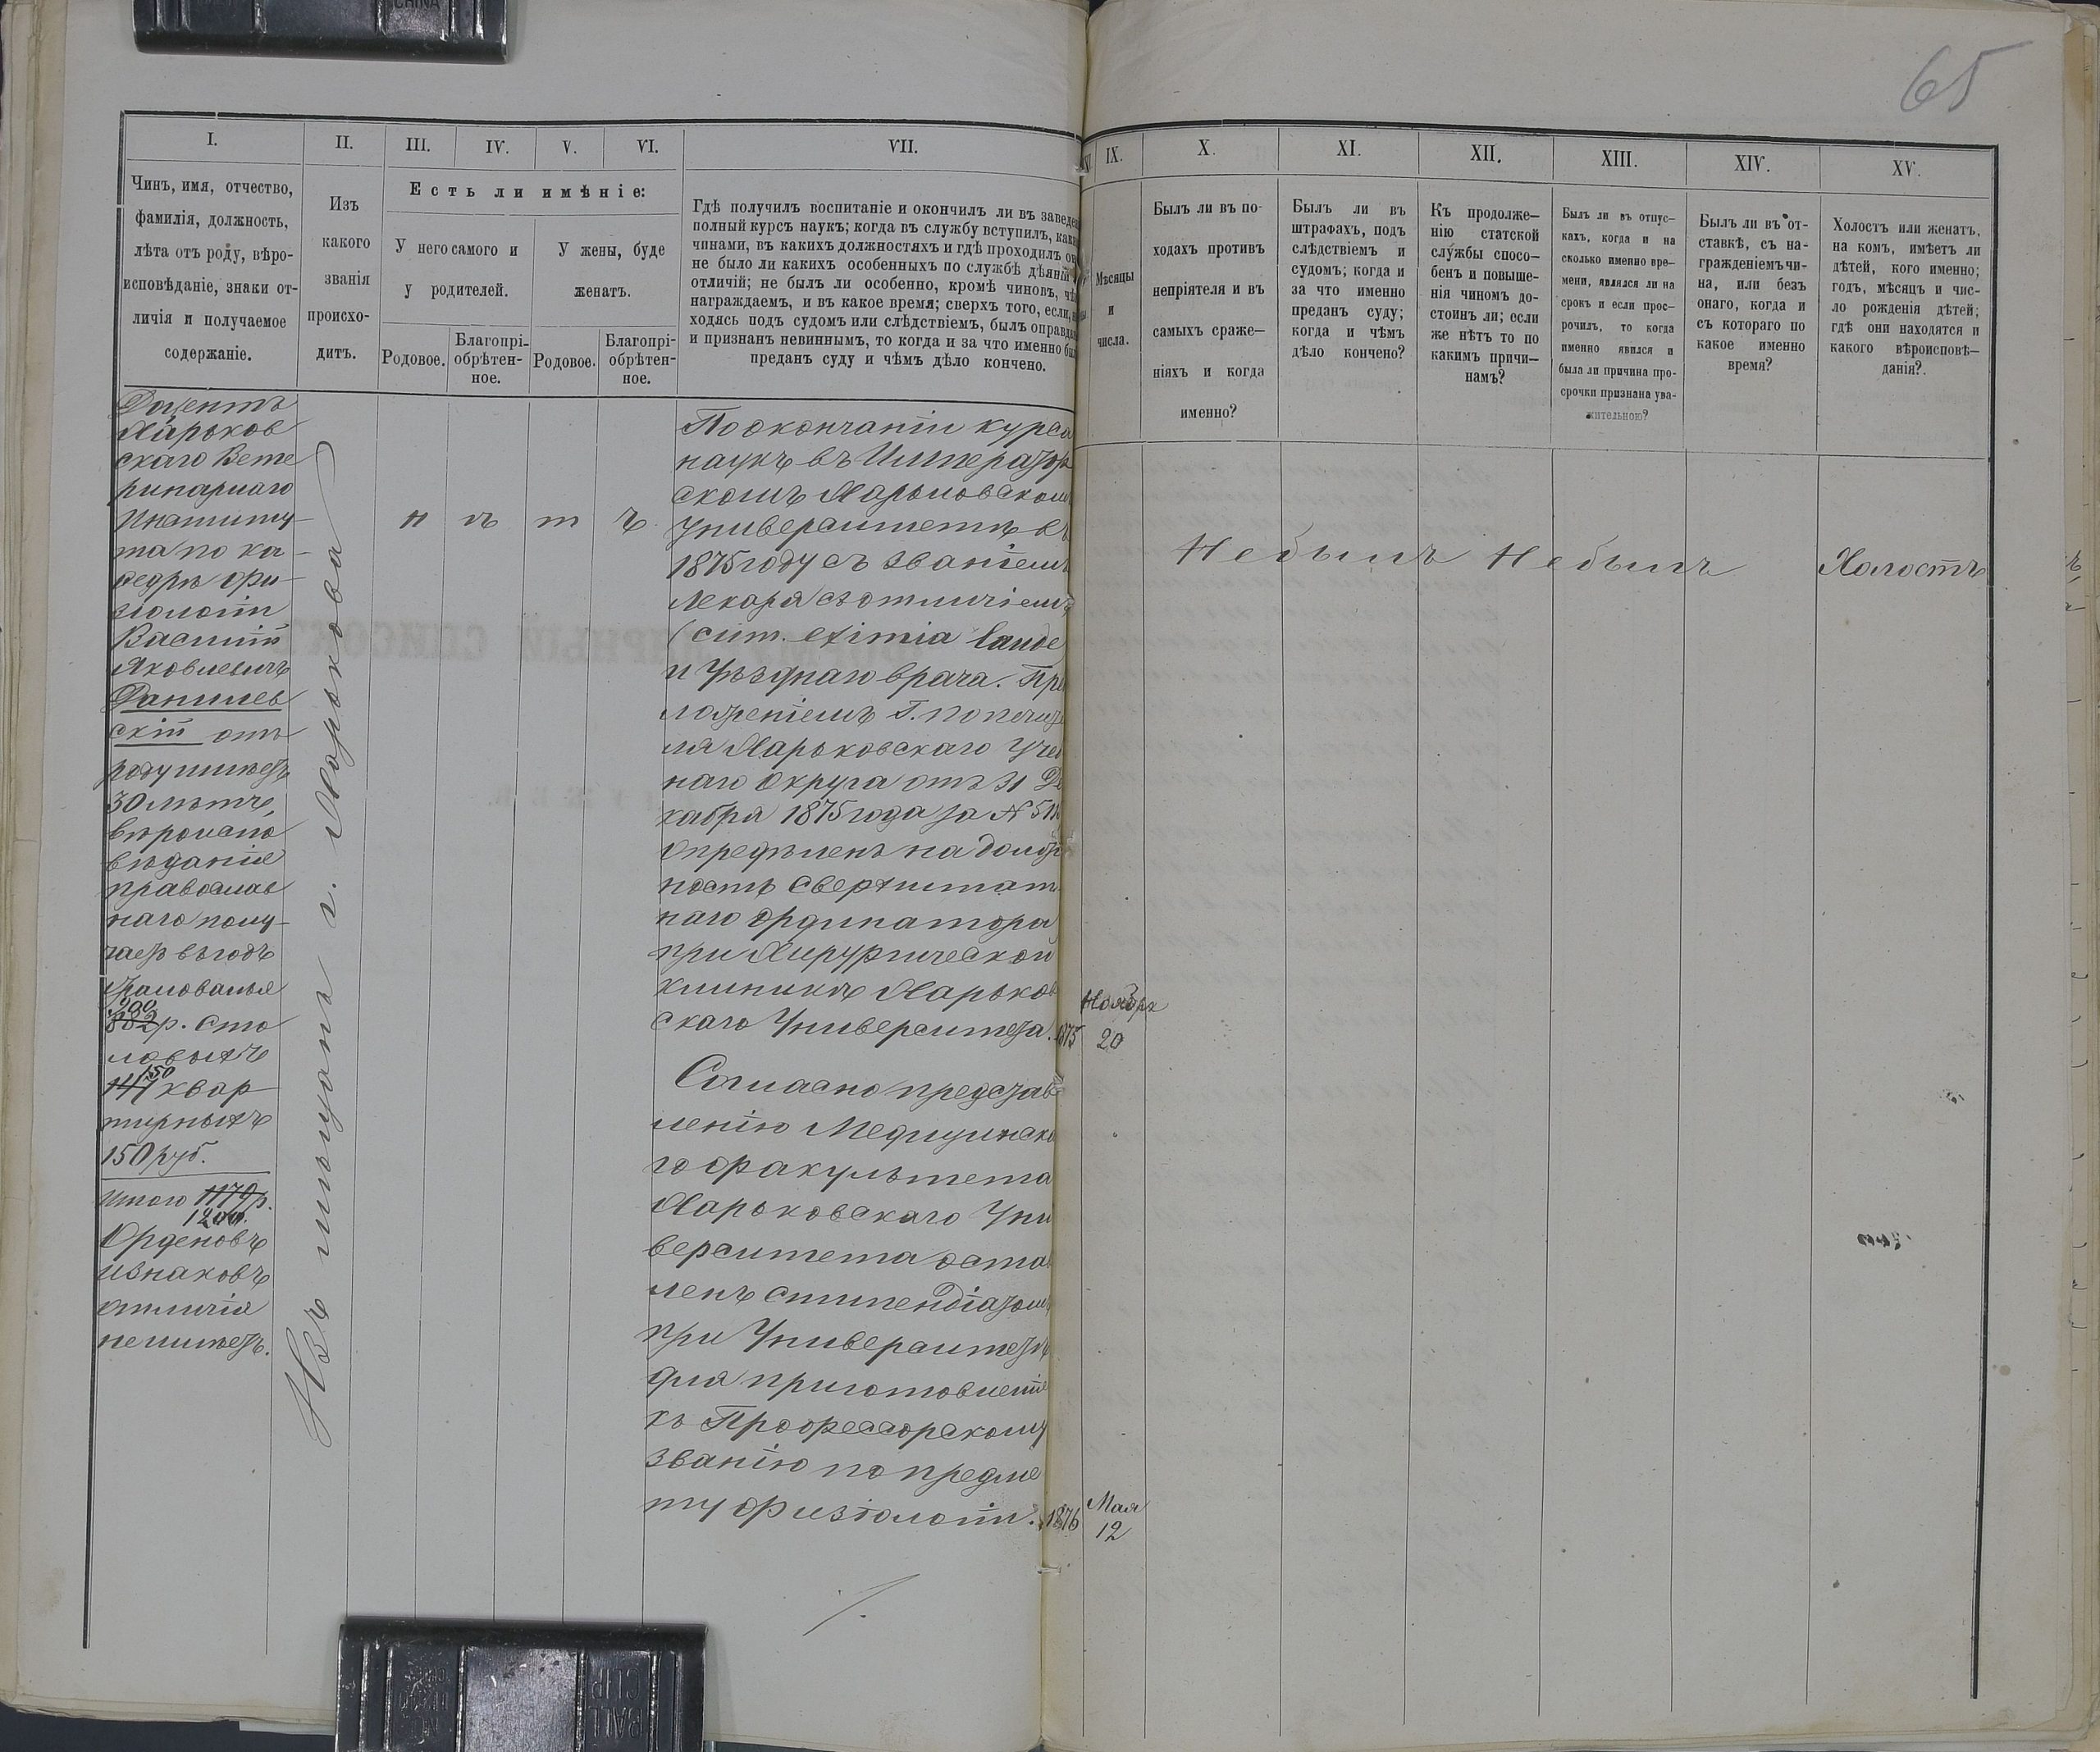 65
I.
II.
III.
IV.
V.
VI.
VII.
IX.
X.
XI.
XII.
XIII.
XIV.
XV.
Чинъ, имя, отчество,
фамилія, должность,
лѣта отъ роду, вѣро-
исповѣданіе, знаки от-
личія и получаемое
содержаніе.
Изъ
какого
званія
происхо-
дитъ.
Есть ли имѣніе:
У него самого и
у родителей.
У жены, буде
женатъ.
Родовое.
Благопрі-
обрѣтен-
ное.
Родовое.
Благопрі-
обрѣтен-
ное.
Гдѣ получилъ воспитаніе и окончилъ ли въ заведе
полный курсъ наукъ; когда въ службу вступилъ, как
чинами, въ какихъ должностяхъ и гдѣ проходилъ он
не было ли какихъ особенныхъ по службѣ дѣяній
отличій; не былъ ли особенно, кромѣ чиновъ, чѣ
награждаемъ, и въ какое время; сверхъ того, если, н
ходясь подъ судомъ или слѣдствіемъ, былъ оправда
и признанъ невиннымъ, то когда и за что именно бы
преданъ суду и чѣмъ дѣло кончено.
Мѣсяцы
и
числа.
Былъ ли въ по-
ходахъ противъ
непріятеля и въ
самыхъ сраже—
ніяхъ и когда
именно?
Былъ ли въ
штрафахъ, подъ
слѣдствіемъ и
судомъ; когда и
за что именно
преданъ суду;
когда и чѣмъ
дѣло кончено?
Къ продолже—
нію статской
службы спосо—
бенъ и повыше—
нія чиномъ до—
стоинъ ли; если
же нѣтъ то по
какимъ причи—
намъ?
Былъ ли въ отпус—
кахъ, когда и на
сколько именно вре—
мени, являлся ли на
срокъ и если прос—
рочилъ, то когда
именно явился и
была ли причина про-
срочки признана ува-
жительною?
Былъ ли въ от-
ставкѣ, съ на-
гражденіемъ чи-
на, или безъ
онаго, когда и
съ котораго по
какое именно
время?
Холостъ или женатъ,
на комъ, имѣетъ ли
дѣтей, кого именно;
годъ, мѣсяцъ и чис-
ло рожденія дѣтей;
гдѣ они находятся и
какого вѣроисповѣ—
данія?
Доцентъ
Харьков
скаго Вете
ринарнаго
Институ-
та по ка-
ѳедрѣ фи-
зіологіи
Василій
Яковлевичъ
Данилев
скій отъ
роду имѣетъ
30 лѣтъ,
вѣроиспо
вѣданія
православ
наго полу-
чаетъ въ годъ
жалованья
900
882 р. сто
ловыхъ
150
147 квар
тирныхъ
150 руб.
Итого 1179 р.
1200.
Орденовъ
и знаковъ
отличія
не имѣетъ.
Изъ мѣщанъ г. Харькова
н ѣ т ъ
По окончаніи курса
наукъ въ Император
скомъ Харьковском
Университетѣ въ
1875 году съ званіемъ
лекаря съ отличіемъ
(cum eximia laude
и Уѣзднаго врача. Пред
ложеніемъ Г. Попечите
ля Харьковскаго Учеб
наго Округа отъ 31 Де
кабря 1875 года за №
опредѣленъ на долж
ность сверхштат
наго ординатора
при Хирургической
клиникѣ Харьков
скаго Университета. 1875
Ноября
20
Согласно представ
ленію Медицинска
го факультета
Харьковскаго Уни
верситета остав
ленъ стипендіатомъ
при Университетѣ
для приготовленія
къ Профессорскому
званію по предме
ту физіологіи. 1876
Мая
12
Небылъ Небылъ
Холостъ